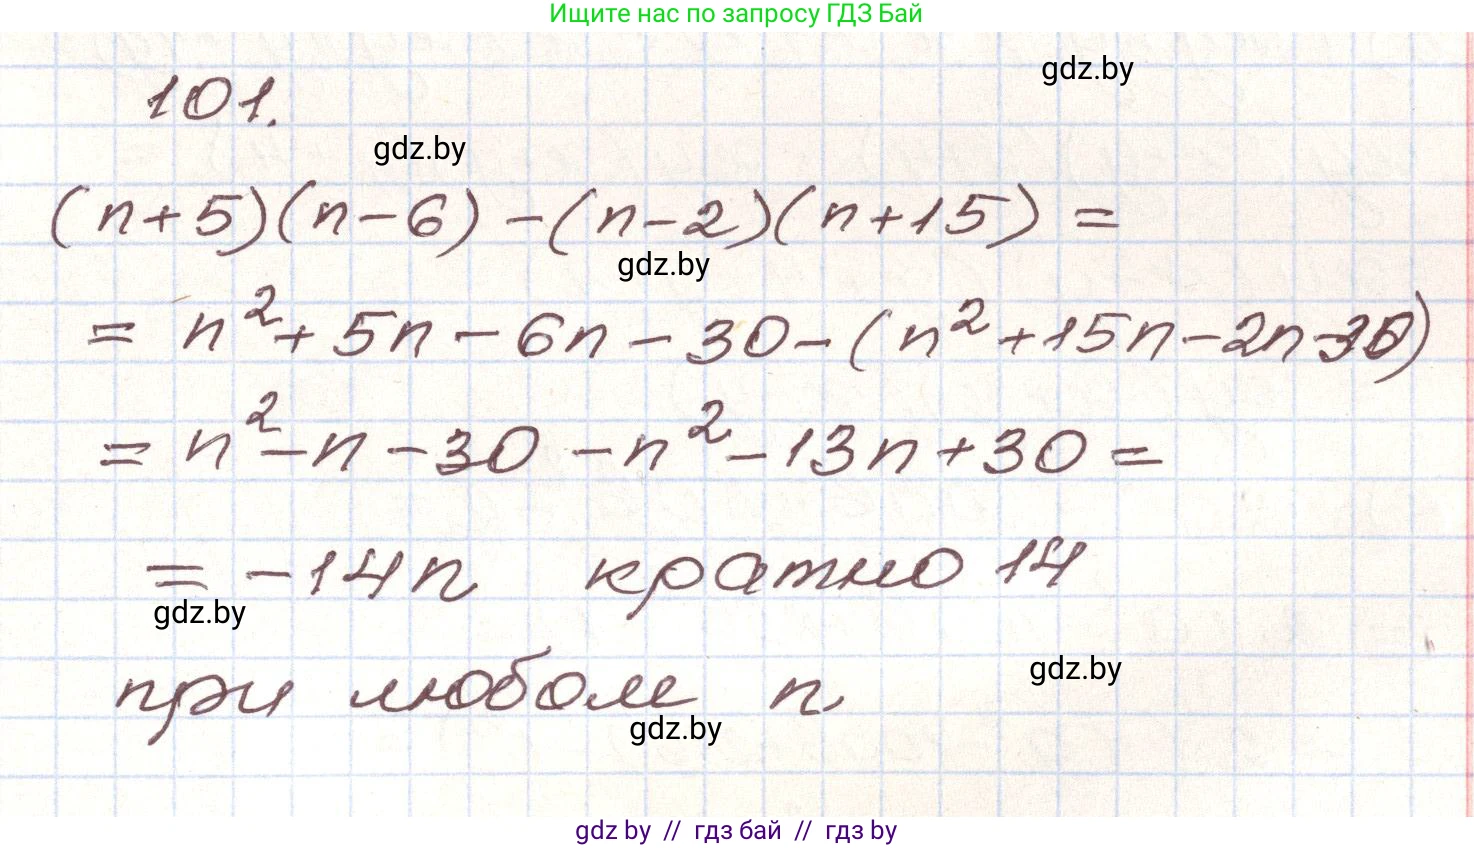 Ищите нас по запросу ГДЗ Бай
gdz.by
101.
gdz.by
(n+5)(n-6)-(n-2)(n+15)=
gdz.by
= n²+5n-6n-30-(n²+15n-2n-30)
= n²-n-30-n²-13n+30=
= -14n кратно 14
gdz.by
при любом n
gdz.by
gdz.by
gdz by // гдз бай // гдз by